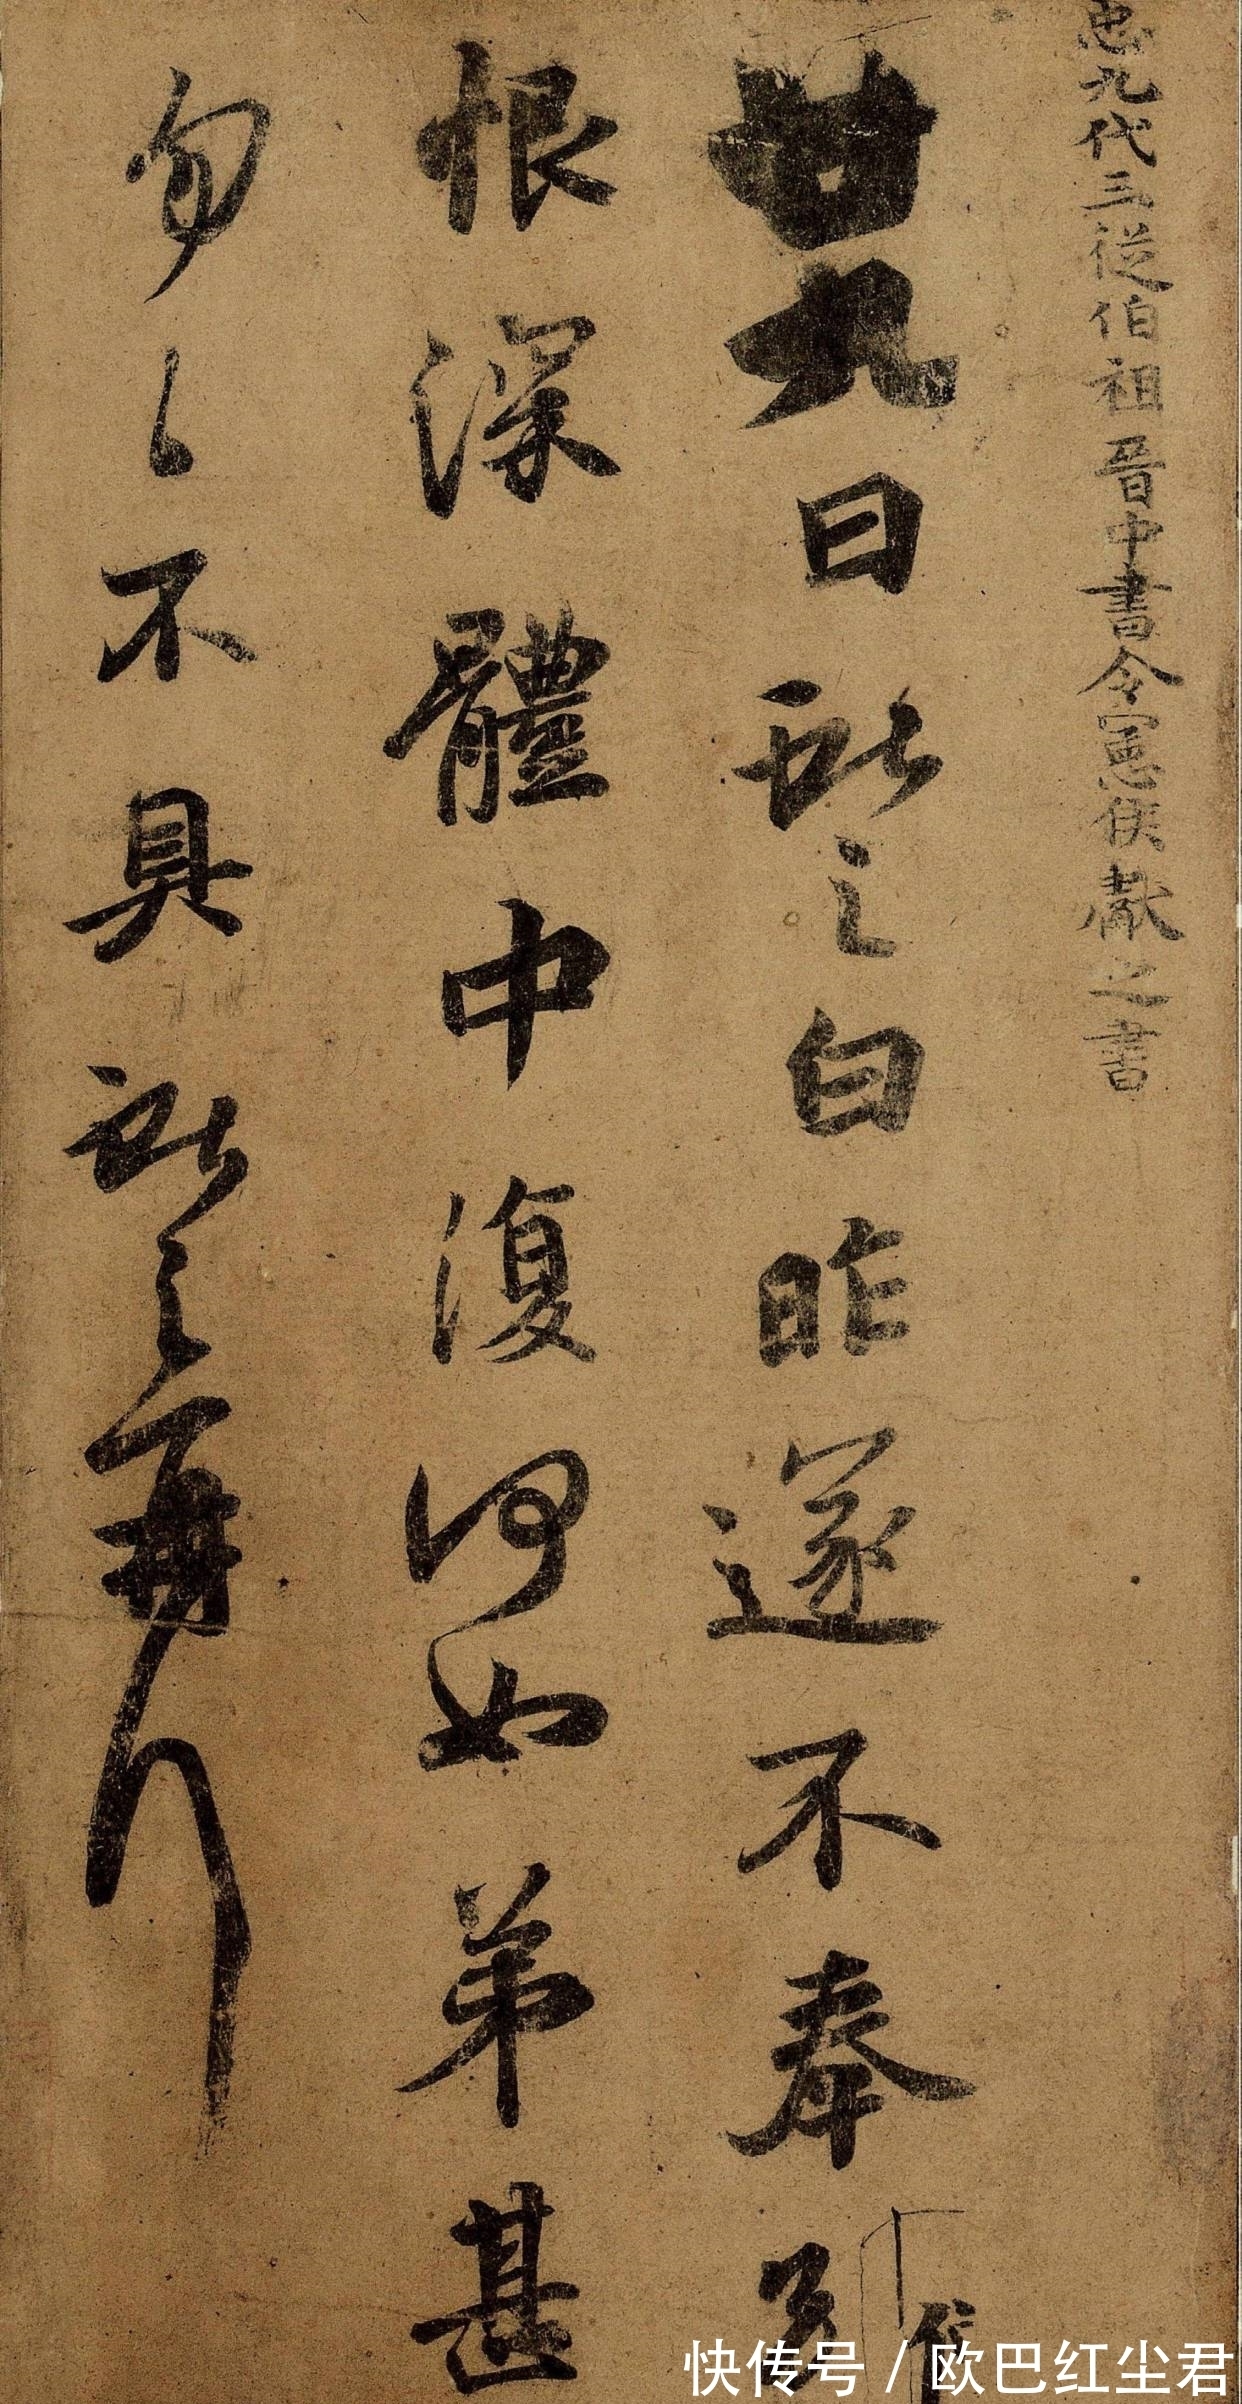 臣九代三從伯祖晉中書令憲侯獻之書
廿九日獻之白昨遂不奉
恨深體中復何如弟甚
匆々不具獻之再拜
快传号 / 欧巴红尘君